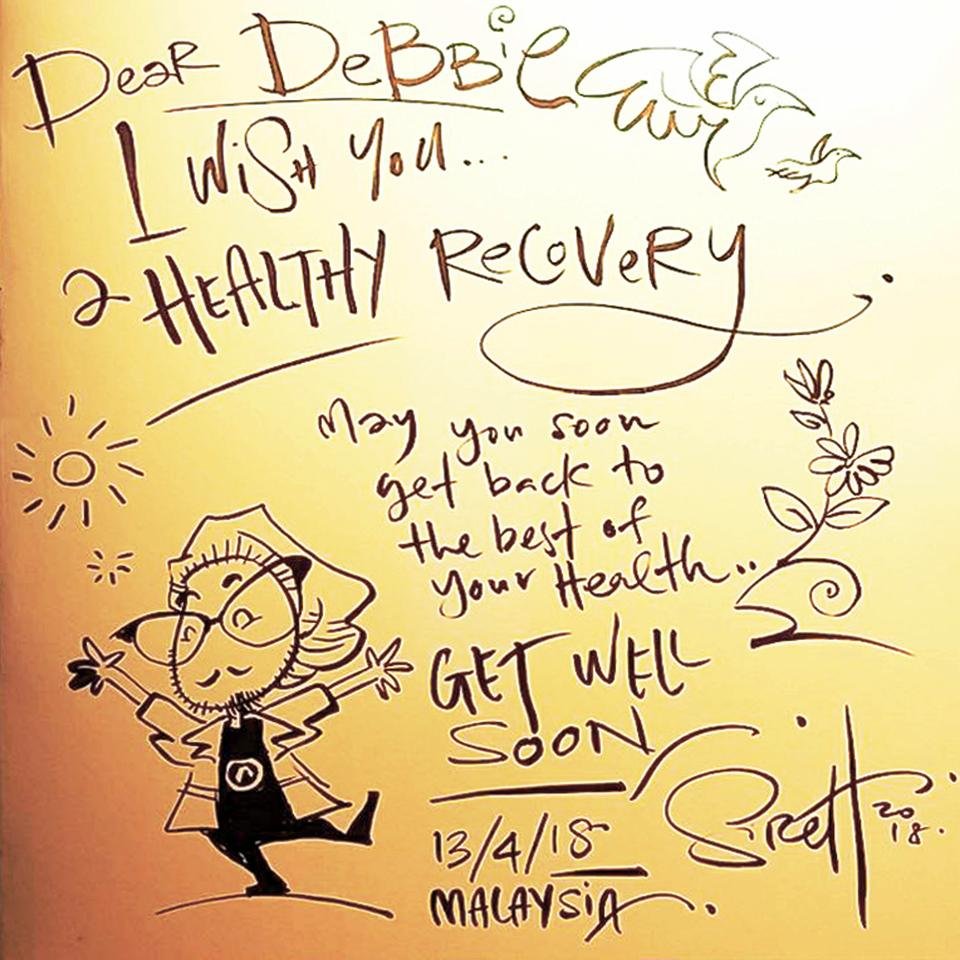 Dear DeBBie
I WiSH You...
a HEALTHY ReCoVeRY
May you soon
get back to
the best of
your Health..
GET WELL
SOON
2018.
13/4/18
MALAYSiA